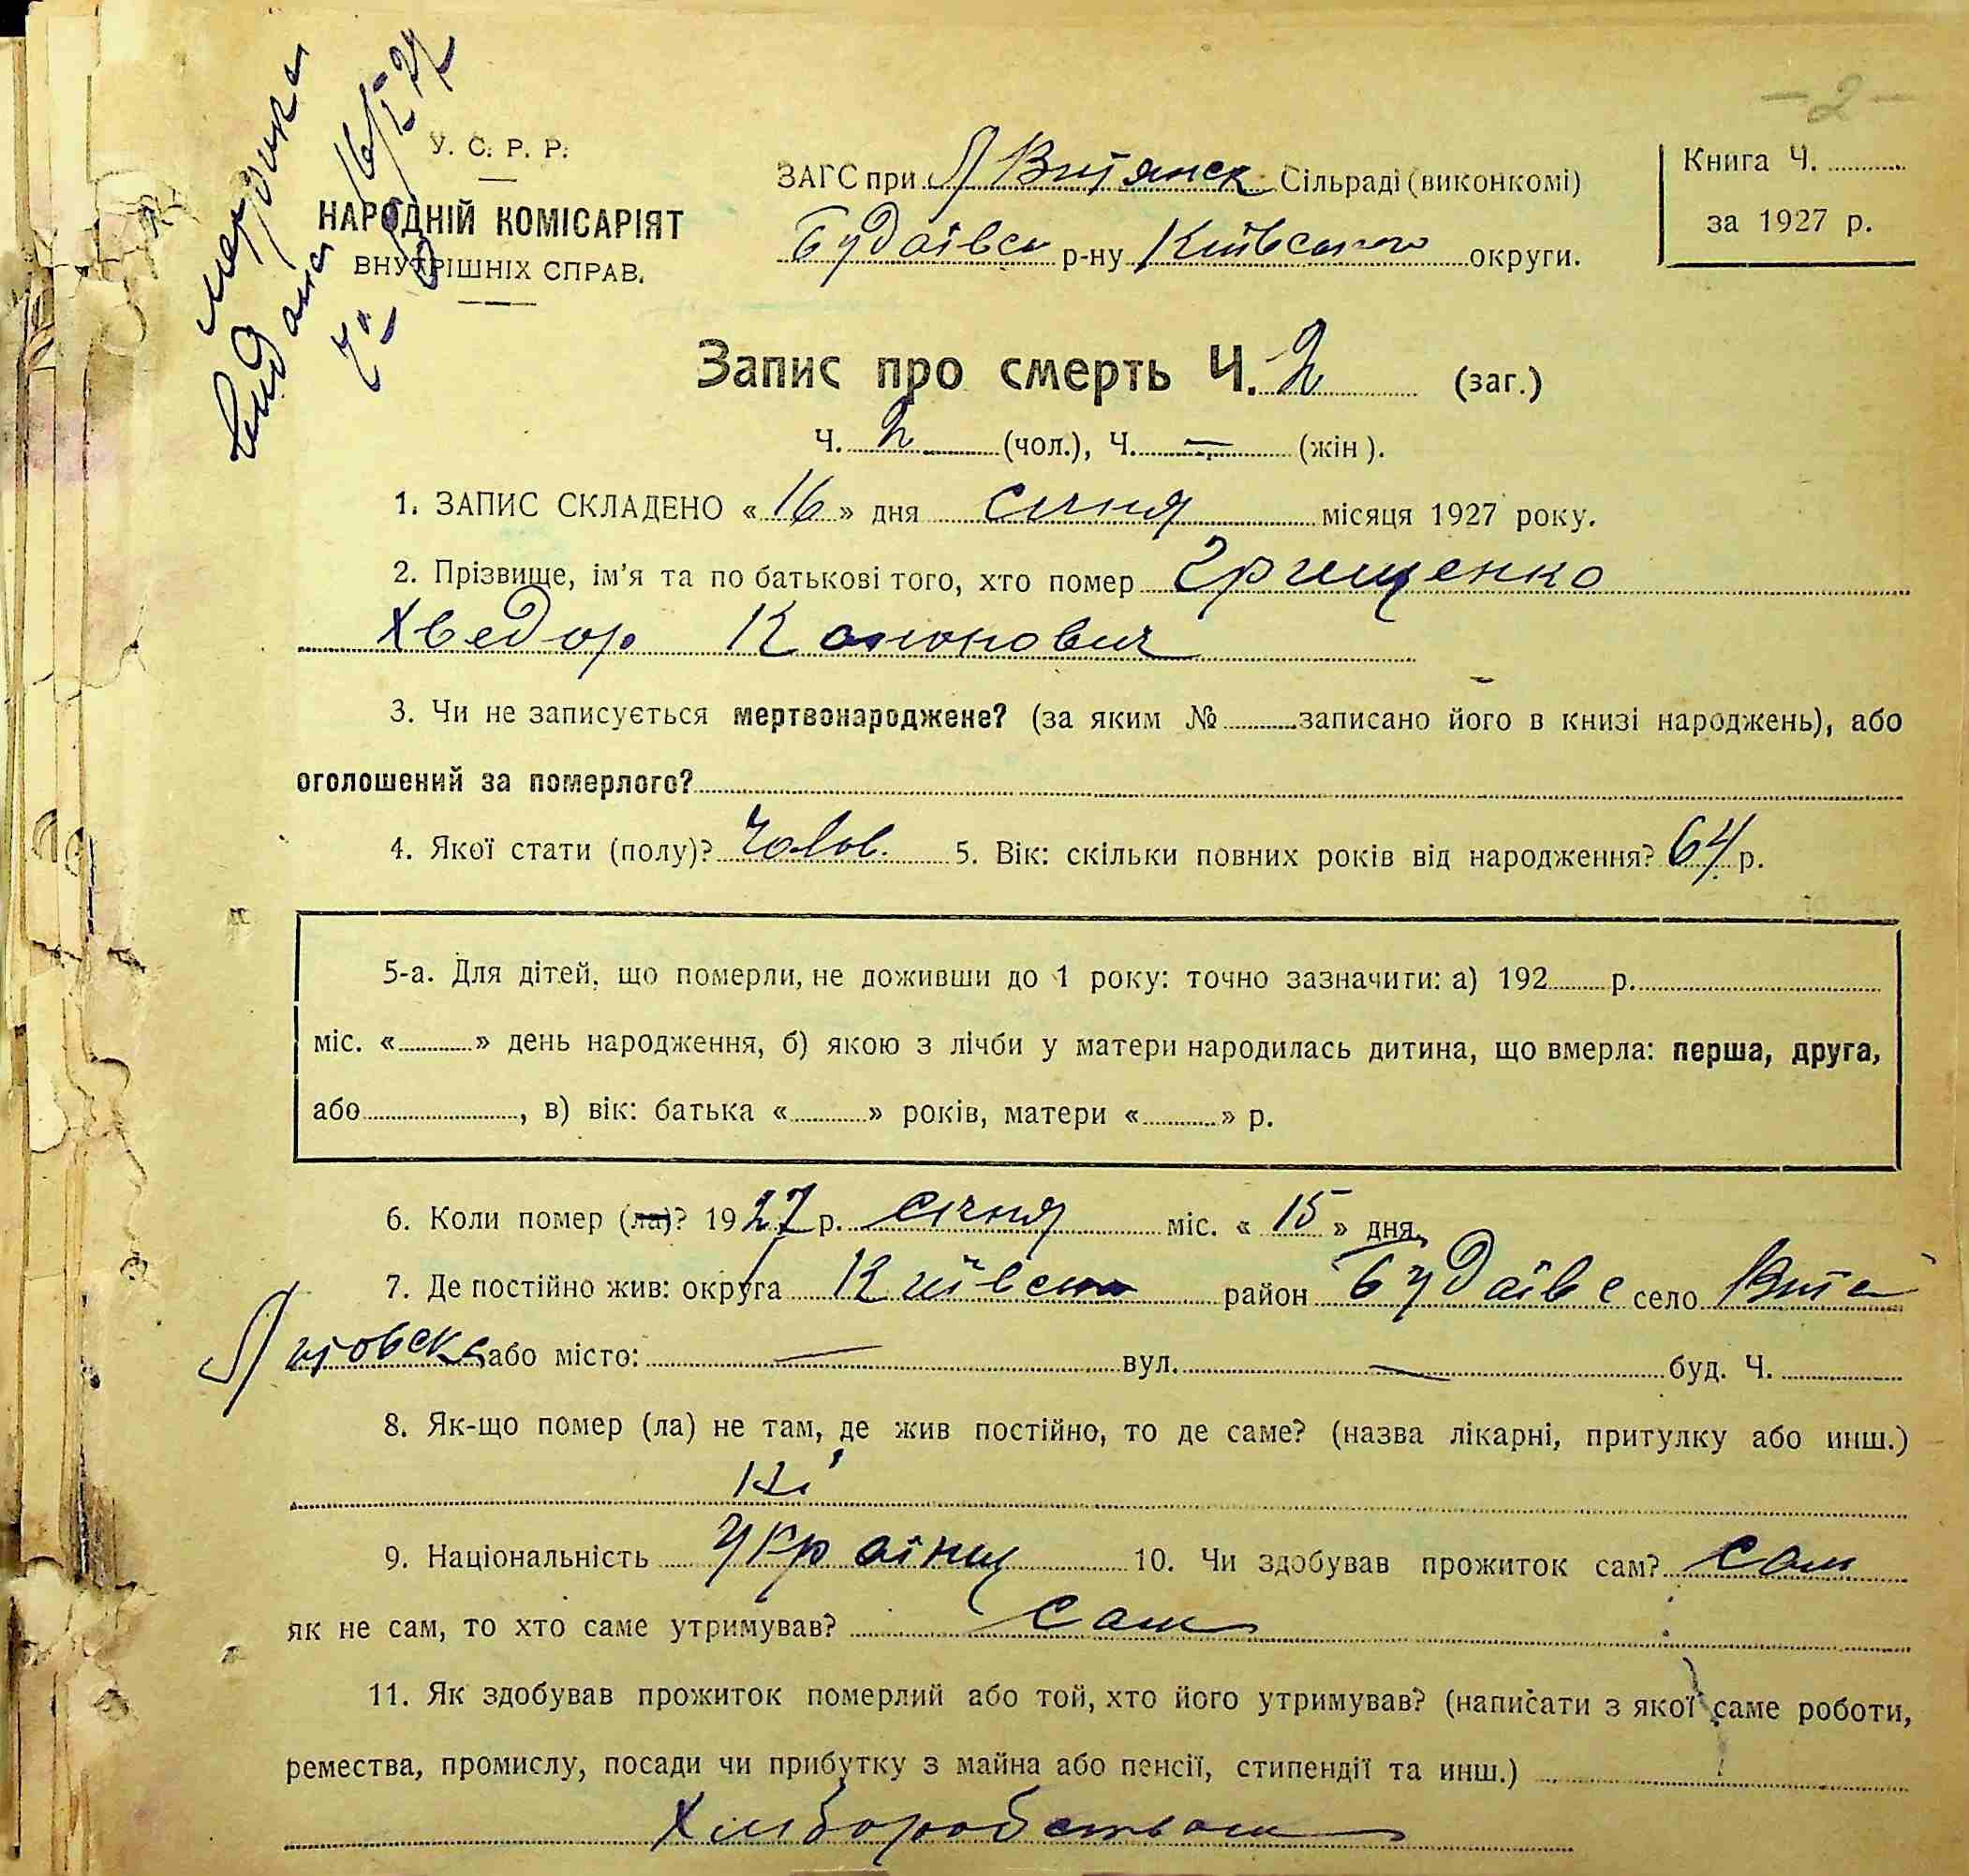 – 2 –
видана 16/I 27
У. С. Р. Р.
НАРОДНІЙ КОМІСАРІЯТ
ВНУТРІШНІХ СПРАВ.
ЗАГС при Л Витянск Сільраді (виконкомі)
Будаівск р-ну Київського округи.
Книга Ч.
за 1927 р.
Запис про смерть Ч. 2 (заг.)
Ч. 2 (чол.), Ч. — (жін).
1. ЗАПИС СКЛАДЕНО «16» дня січня місяця 1927 року.
2. Прізвище, ім'я та по батькові того, хто помер Грищенко
Хведор Кононович
3. Чи не записується мертвонароджене? (за яким № записано його в книзі народжень), або
оголошений за померлого?
4. Якої стати (полу)? Чолов. 5. Вік: скільки повних років від народження? 64 р.
5-а. Для дітей, що померли, не доживши до 1 року: точно зазначити: а) 192 р.
міс. « » день народження, б) якою з лічби у матери народилась дитина, що вмерла: перша, друга,
або , в) вік: батька « » років, матери « » р.
6. Коли помер (ла)? 1927 р. січня міс. «15» дня
7. Де постійно жив: округа Київськ район Будаівс село Вита
Литовска або місто: — вул. — буд. Ч.
8. Як-що помер (ла) не там, де жив постійно, то де саме? (назва лікарні, притулку або инш.)
Ні
9. Національність Украінц 10. Чи здобував прожиток сам? Сам
як не сам, то хто саме утримував? Сам
11. Як здобував прожиток померлий або той, хто його утримував? (написати з якої саме роботи,
ремества, промислу, посади чи прибутку з майна або пенсії, стипендії та инш.)
Хліборобством